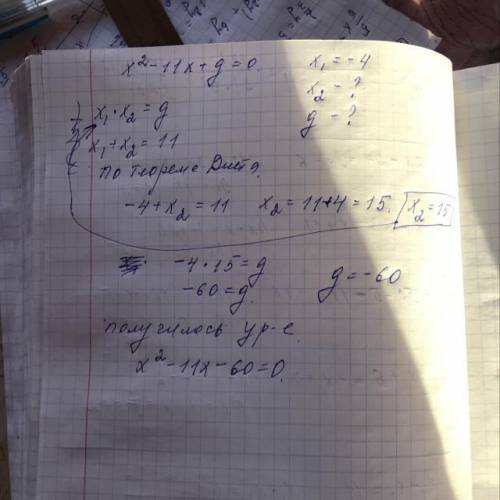 x² - 11x + g = 0
x₁ = -4
x₂ - ?
g - ?
x₁ · x₂ = g
x₁ + x₂ = 11
по теореме Виета
-4 + x₂ = 11 x₂ = 11 + 4 = 15. x₂ = 15
-4 · 15 = g
-60 = g. g = -60
получилось ур-е.
x² - 11x - 60 = 0.